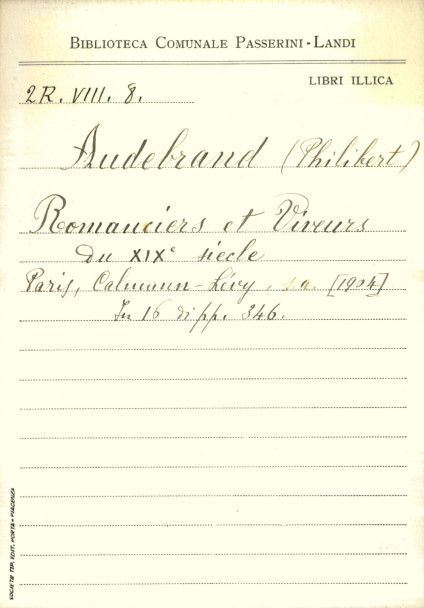 BIBLIOTECA COMUNALE PASSERINI-LANDI
LIBRI ILLICA
2R. VIII. 8.
Audebrand (Philibert)
Romanciers et Viveurs
du XIXe siècle
Paris, Calmann-Lévy, s.a. [1904]
In 16 di pp. 346.
SOCIETÀ TIP. EDIT. PORTA - PIACENZA